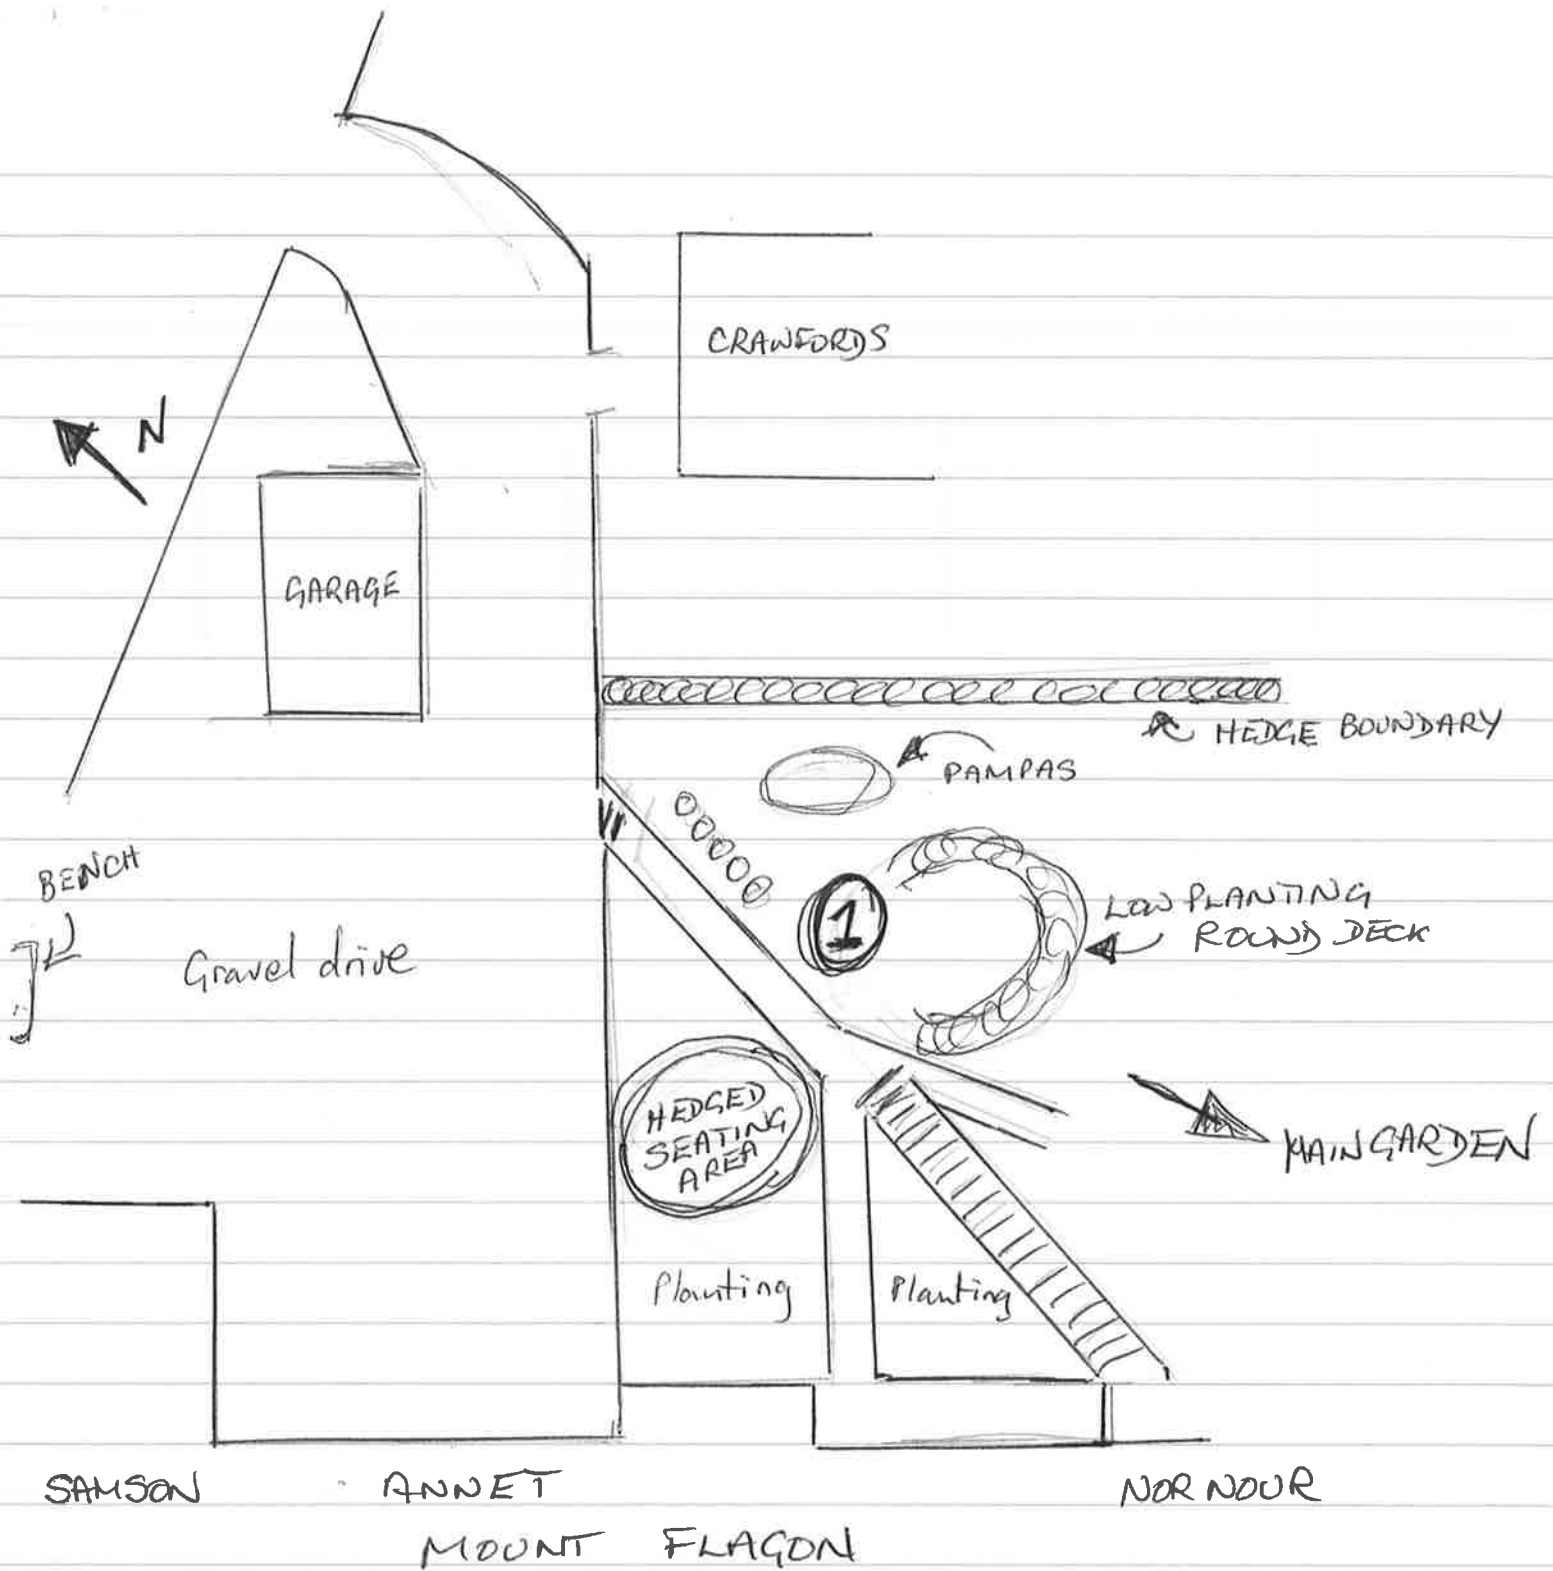 CRAWFORDS
N
GARAGE
HEDGE BOUNDARY
PAMPAS
BENCH
1
LOW PLANTING
ROUND DECK
Gravel drive
HEDGED
SEATING
AREA
MAIN GARDEN
Planting
Planting
SAMSON
ANNET
NORNOUR
MOUNT FLAGON